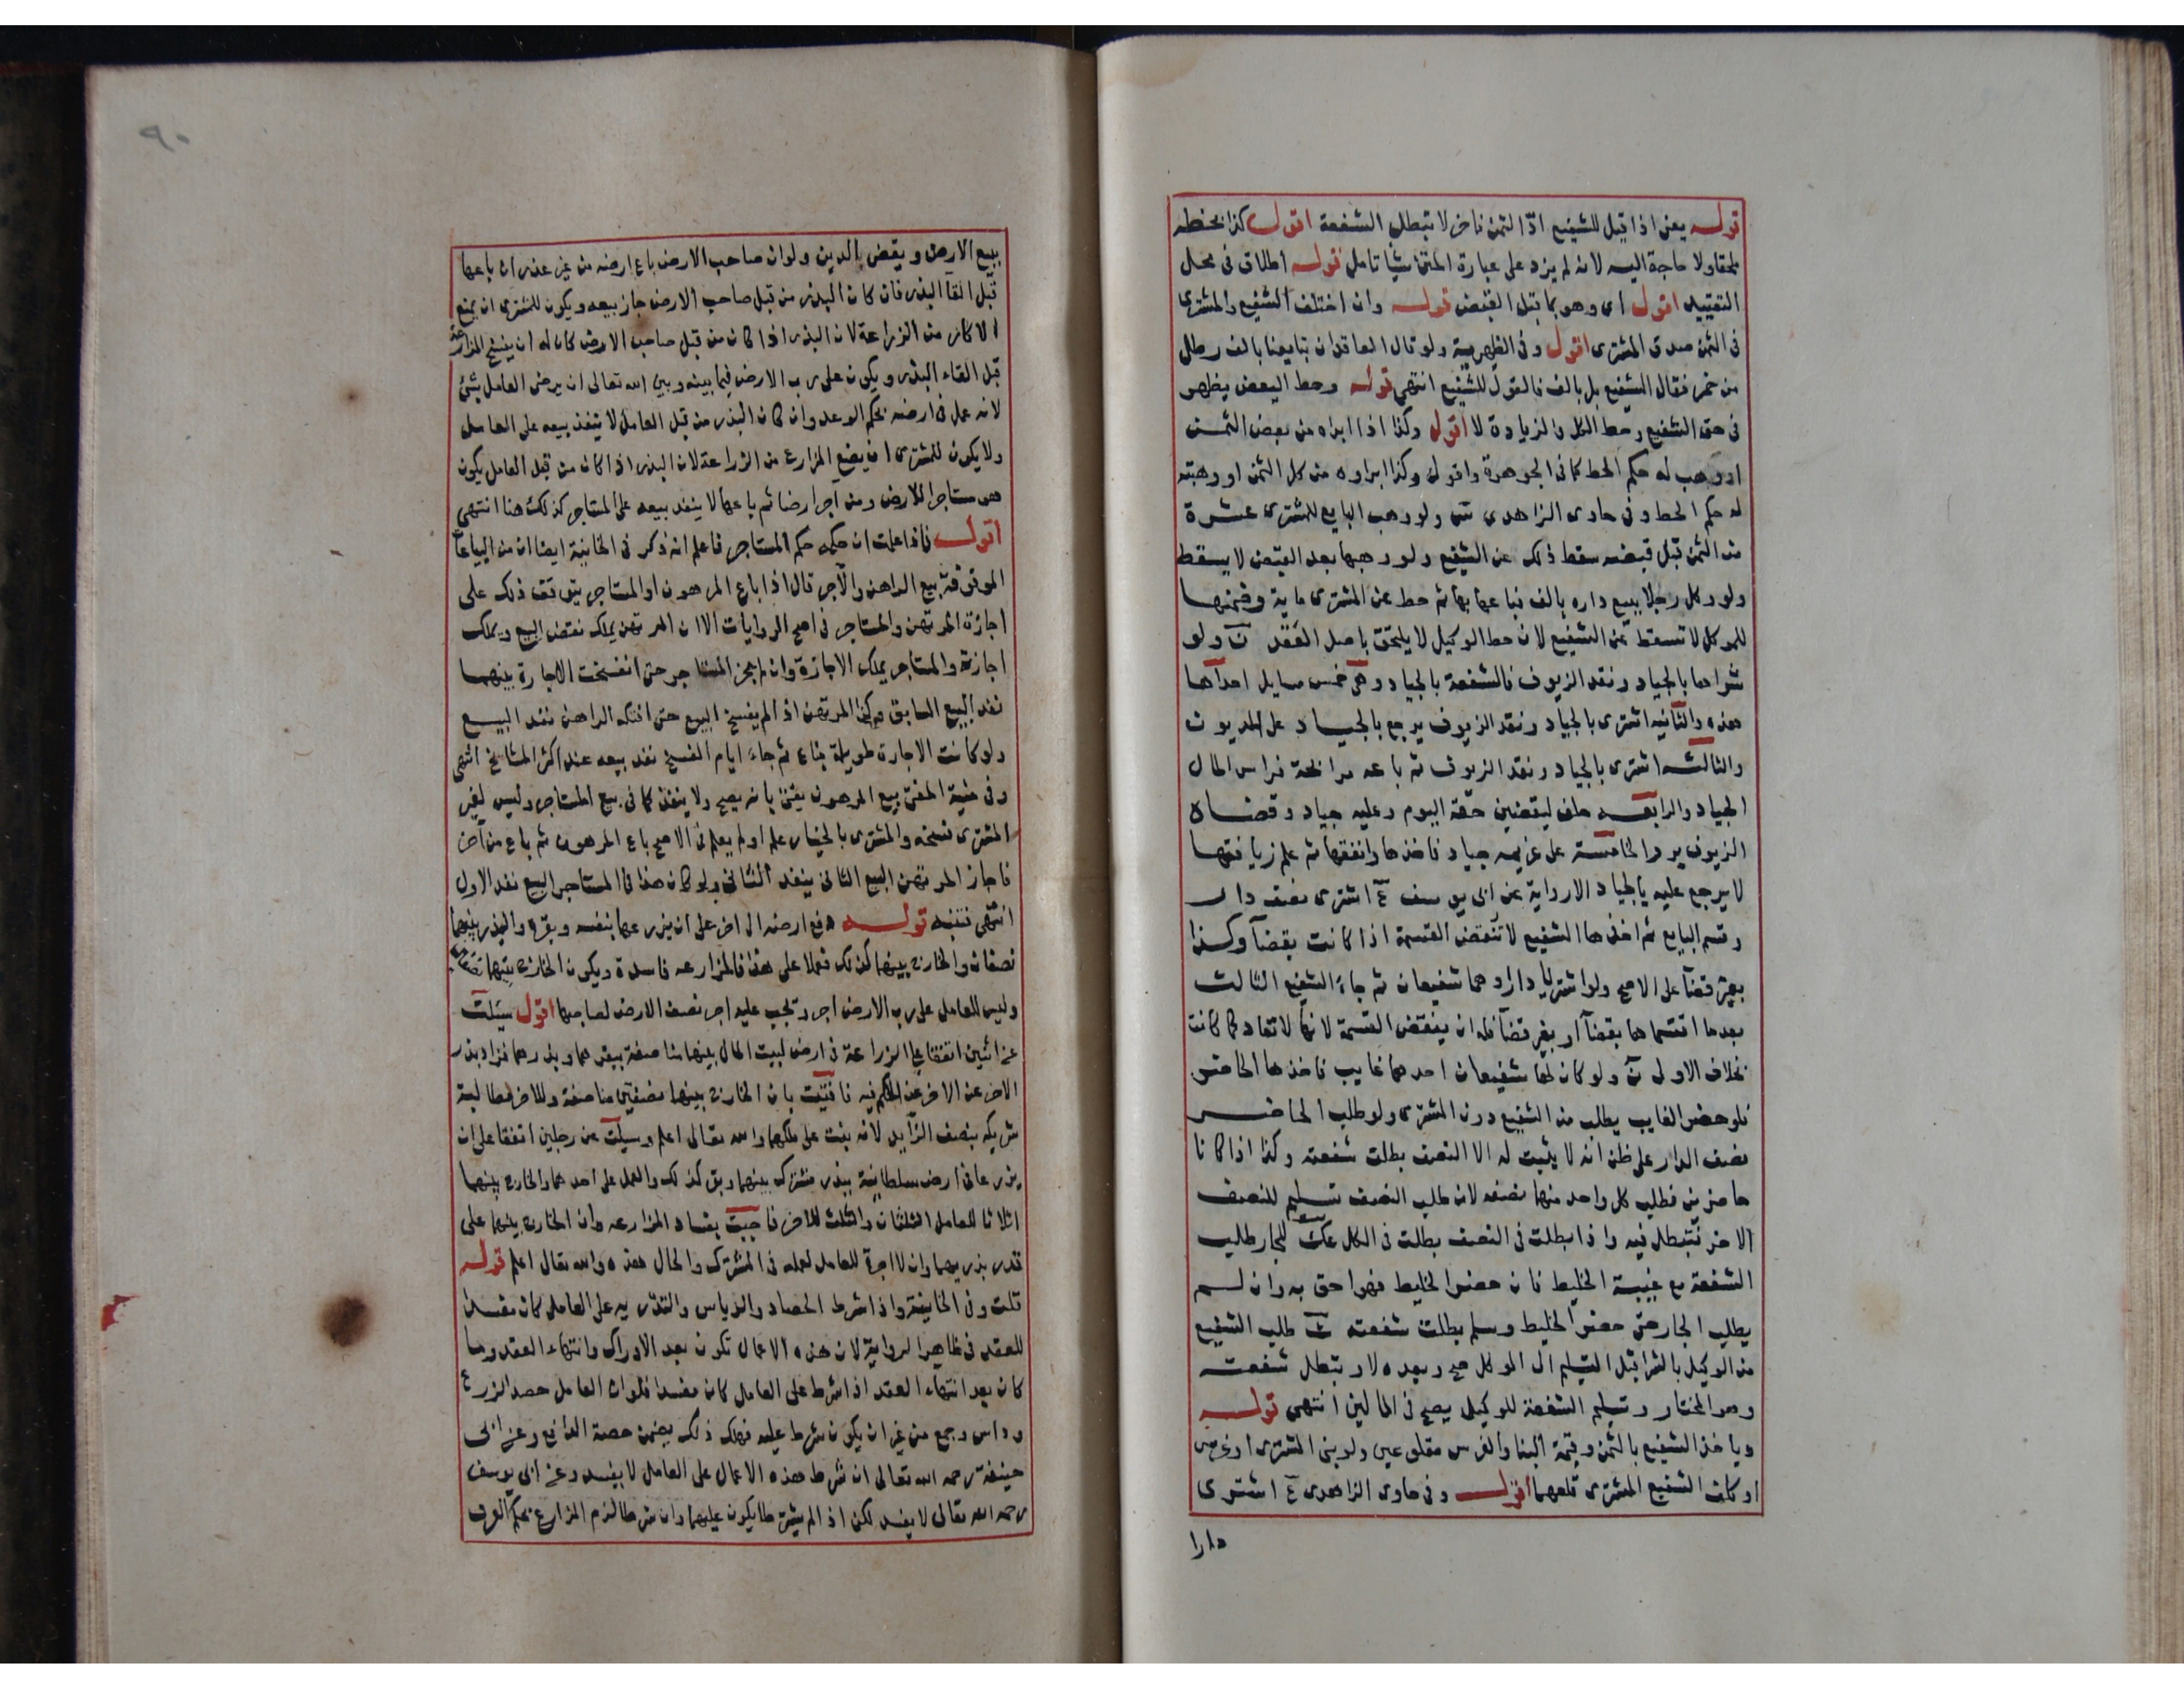 قوله يعني اذا قيل للشفيع ادّ الثمن فاخر لا تبطل الشفعة اقول كذا بخطه
ملحقا ولا حاجة اليه لانه لم يزد على عبارة المتن شيا تامل قوله اطلاق في محل
التقييد اقول اى وهو بما قبل القبض قوله وان اختلف الشفيع والمشترى
في الثمن صدق المشترى اقول وفي الظهيرية ولو قال العاقدان تبايعنا بالف رطل
من خمر فقال الشفيع بل بالف فالقول للشفيع انتهى قوله وحط البعض يظهر
في حق الشفيع وحط الكل والزيادة لا اقول وكذا اذا ابراه من بعض الثمن
او وهب له حكم الحط كما في الجوهرة واقول وكذا ابراوه من كل الثمن او وهبته
له حكم الحط وفي حاوى الزاهدى ولو وهب البايع للمشترى عشرة
من الثمن قبل قبضه سقط ذلك عن الشفيع ولو وهبها بعد القبض لا يسقط
ولو وكل رجلا ببيع داره بالف فباعها بها ثم حط عن المشترى ماية وضمنها
للموكل لا تسقط عن الشفيع لان حط الوكيل لا يلتحق باصل العقد ن ولو
شراها بالجياد ونقد الزيوف فالشفعة بالجياد وهى خمس مسايل احداها
هذه والثانية اشترى بالجياد ونقد الزيوف يرجع بالجياد على المديون
والثالثه اشترى بالجياد ونقد الزيوف ثم باعه مرابحة فراس المال
الجياد والرابعه حلف ليقضين حقه اليوم وعليه جياد وقضاه
الزيوف بر والخامسة على غريمه جياد فاخذها وانفقها ثم علم زيافتها
لا يرجع عليه بالجياد الا رواية عن ابى يوسف ع اشترى نصف دار
وقسم البايع ثم اخذها الشفيع لا تنقض القسمة اذا كانت بقضآ وكذا
بغير قضآ على الاصح ولو اشتريا دارا وهما شفيعان ثم جآء الشفيع الثالث
بعدما اقتسماها بقضآ او بغير قضآ فله ان ينقض القسمة لانها لا تعاد كما كانت
بخلاف الاولى ن ولو كان لها شفيعان احدهما غايب فاخذها الحاضر
فلو حضر الغايب يطلب من الشفيع دون المشترى ولو طلب الحاضر
نصف الدار على ظن انه لا يثبت له الا النصف بطلت شفعته وكذا اذا كانا
حاضرين فطلب كل واحد منهما نصفه لان طلب النصف تسليم للنصف
الاخر فتبطل فيه واذا بطلت في النصف بطلت في الكل عك للجار طلب
الشفعة مع غيبة الخليط فان حضر الخليط فهو احق به وان لم
يطلب الجار حتى حضر الخليط وسلم بطلت شفعته ع طلب الشفيع
من الوكيل بالشرا قبل التسليم الى الموكل صح وبعده لا وتبطل شفعته
وهو المختار وتسليم الشفعة للوكيل يصح في الحالين انتهى قوله
وياخذ الشفيع بالثمن وقيمة البنا والغرس مقلوعين ولو بنى المشترى او غرس
او كلف الشفيع المشترى قلعهما اقول وفي حاوى الزاهدى ع اشترى
دارا
٩٠
ببيع الارض ويقضى بالدين ولو ان صاحب الارض باع ارضه من غير عذر ان باعها
قبل القآ البذر فان كان البذر من قبل صاحب الارض جاز بيعه ويكون للمشترى ان يمنع
الاكار من الزراعة لان البذر اذا كان من قبل صاحب الارض كان له ان يفسخ المزارعة
قبل القاء البذر ويكون على رب الارض فيما بينه وبين الله تعالى ان يرضى العامل بشئ
لانه عمل في ارضه بحكم الوعد وان كان البذر من قبل العامل لا ينفذ بيعه على العامل
ولا يكون للمشترى ان يمنع المزارع من الزراعة لان البذر اذا كان من قبل العامل يكون
هو مستاجرا للارض ومن اجر ارضا ثم باعها لا ينفد بيعه على المستاجر كذلك هنا انتهى
اقول فاذا علمت ان حكمه حكم المستاجر فاعلم انه ذكر في الخانية ايضا ان من البياعات
الموقوفة بيع الراهن والآجر قال اذا باع المرهون او المستاجر يتوقف ذلك على
اجازة المرتهن والمستاجر في اصح الروايات الا ان المرتهن يملك نقض البيع ويملك
اجازته والمستاجر يملك الاجازة وان لم يجز المستاجر حتى انفسخت الاجارة بينهما
نفد البيع السابق وكذا المرتهن اذا لم يفسخ البيع حتى افتكه الراهن نفد البيع
ولو كانت الاجارة طويلة فباع ثم جآء ايام الفسخ نفد بيعه عند اكثر المشايخ انتهى
وفي منية المفتى بيع المرهون يفتى بانه يصح ولا ينفذ كما في بيع المستاجر وليس لغير
المشترى فسخه والمشترى بالخيار علم او لم يعلم في الاصح باع المرهون ثم باع من آخر
فاجاز المرتهن البيع الثانى ينفد الثانى ولو كان هذا في المستاجر البيع نفد الاول
انتهى فتنبه قوله دفع ارضه الى اخر على ان يزرعها بنفسه وبقره والبذر بينهما
نصفان والخارج بينهما كذلك فعملا على هذا فالمزارعه فاسدة ويكون الخارج بينهما نصفان
وليس للعامل على رب الارض اجر وتجب عليه اجر نصف الارض لصاحبها اقول سيلت
عن اثنين اتفقا على الزراعة في ارض لبيت المال بينهما مناصفة ببقرهما وبذرهما فزاد بذر
الاخر عن الاخر عن الحكم فيه فافتيت بان الخارج بينهما نصفين مناصفة وللاخر مطالبة
شريكه بنصف الزآيد لانه نبت على ملكهما والله تعالى اعلم وسيلت عن رجلين اتفقا على ان
يزرعا في ارض سلطانية ببذر مشترك بينهما وبقر كذلك والعمل على احدهما والخارج بينهما
اثلاثا للعامل الثلثان والثلث للاخر فاجبت بفساد المزارعه وان الخارج بينهما على
قدر بذريهما وان لا اجرة للعامل لعمله في المشترك والحال هذه والله تعالى اعلم قوله
قلت وفي الخانية واذا شرط الحصاد والدياس والتذريه على العامل كان مفسدا
للعقد في ظاهر الرواية لان هذه الاعمال تكون بعد الادراك وانتهاء العقد وما
كان بعد انتهاء العقد اذا شرط على العامل كان مفسدا فلو ان العامل حصد الزرع
وداس وجمع من غير ان يكون شرط عليه فهلك ذلك يضمن حصة الدافع وعن ابى
حنيفة رحمه الله تعالى ان شرط هذه الاعمال على العامل لا يفسد وعن ابى يوسف
رحمه الله تعالى لا يفسد لكن اذا لم يشترطا يكون عليهما وان شرطا لزم المزارع بحكم العرف